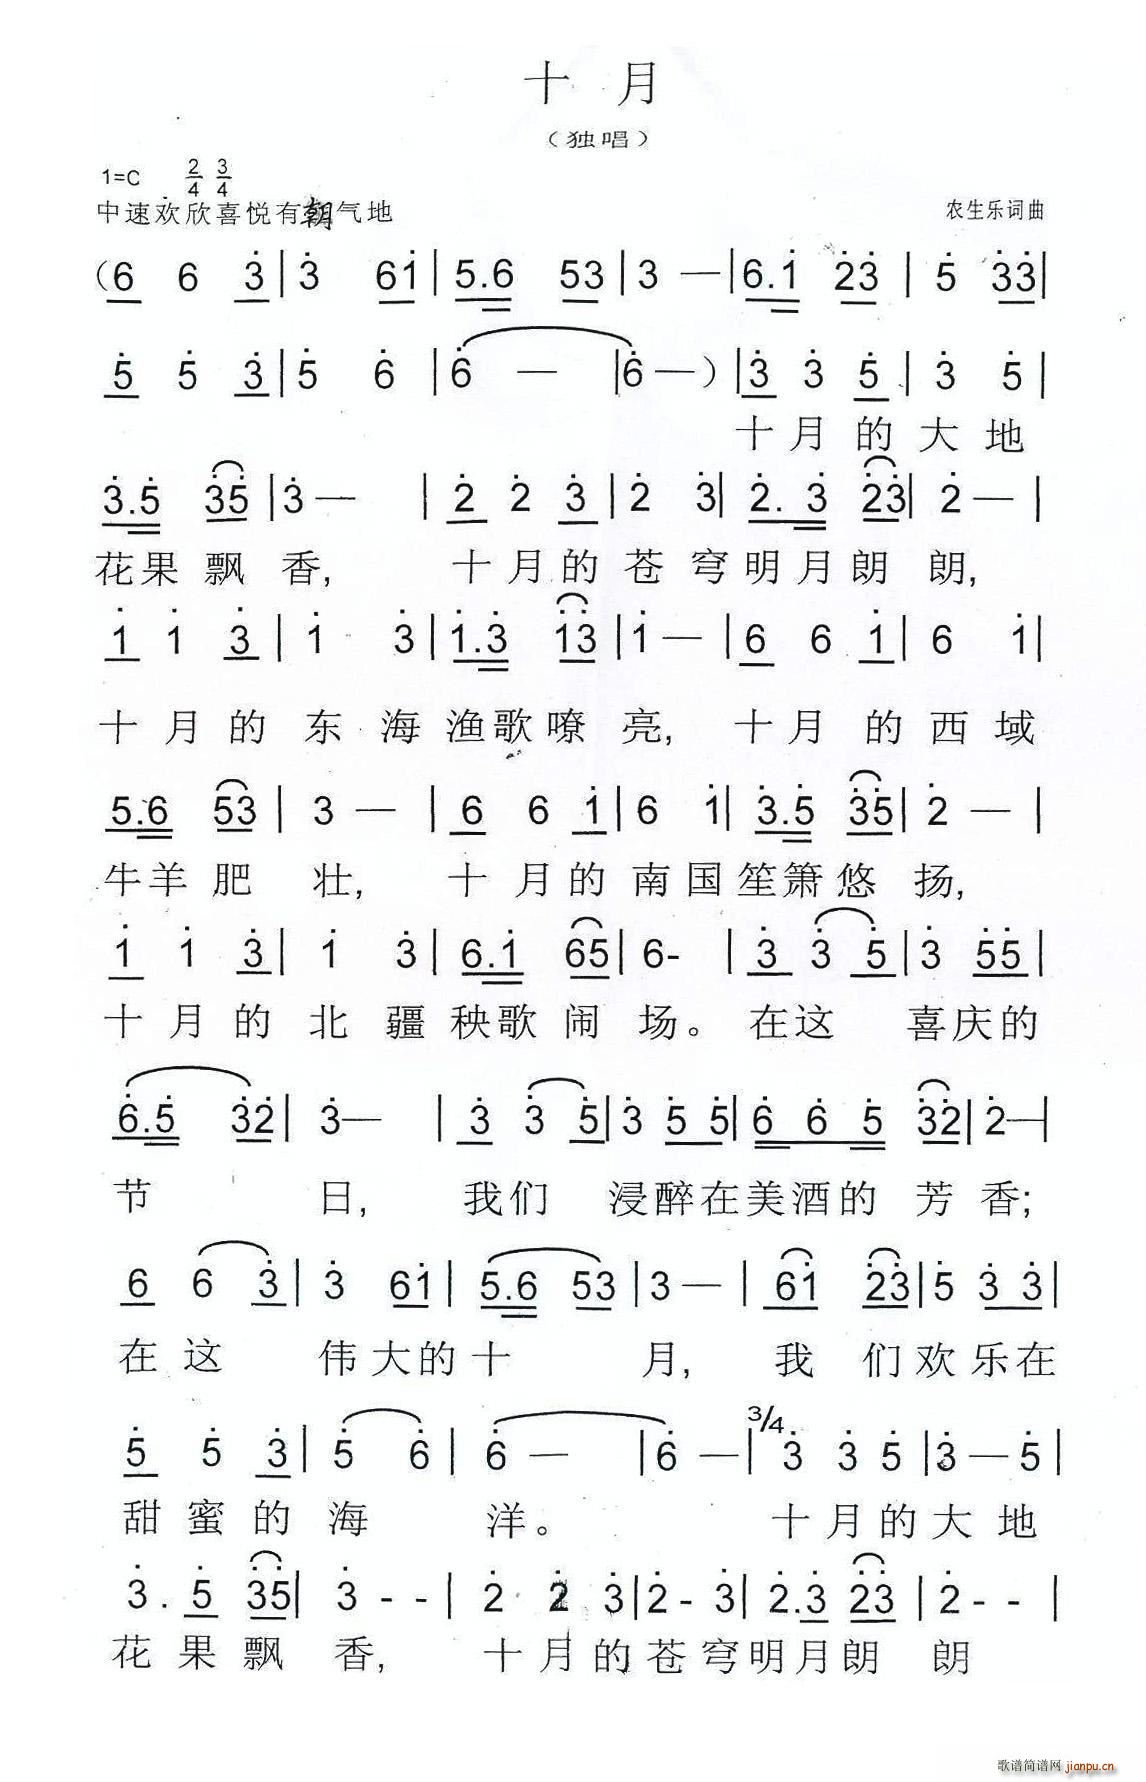 十 月
（独唱）
1=C 2/4 3/4
中速欢欣喜悦有朝气地
农生乐词曲
(6 6 3|3 61|5.6 53|3 —|6.1 23|5 33|
5 5 3|5 6|6 —|6 —)|3 3 5|3 5|
十月的大地
3.5 35|3 — |2 2 3|2 3|2. 3 23|2 —|
花果飘香, 十月的苍穹明月朗朗,
1 1 3|1 3|1.3 13|1 —|6 6 1|6 1|
十月的东海渔歌嘹亮, 十月的西域
5.6 53|3 —|6 6 1|6 1|3.5 35|2 —|
牛羊肥壮, 十月的南国笙箫悠扬,
1 1 3|1 3|6.1 65|6- |3 3 5|3 55|
十月的北疆秧歌闹场。在这 喜庆的
6.5 32|3 — |3 3 5|3 5 5|6 6 5 32|2 —|
节 日, 我们 浸醉在美酒的芳香;
6 6 3|3 61|5.6 53|3 —|61 23|5 3 3|
在这 伟大的十 月, 我 们欢乐在
5 5 3|5 6|6 —|6 —|3/4 3 3 5|3 — 5|
甜蜜的海 洋。 十月的大地
3 . 5 35|3 - -|2 2 3|2 - 3|2.3 23|2 - -|
花果飘 香, 十月的苍穹明月朗 朗
歌谱简谱网 jianpu.cn